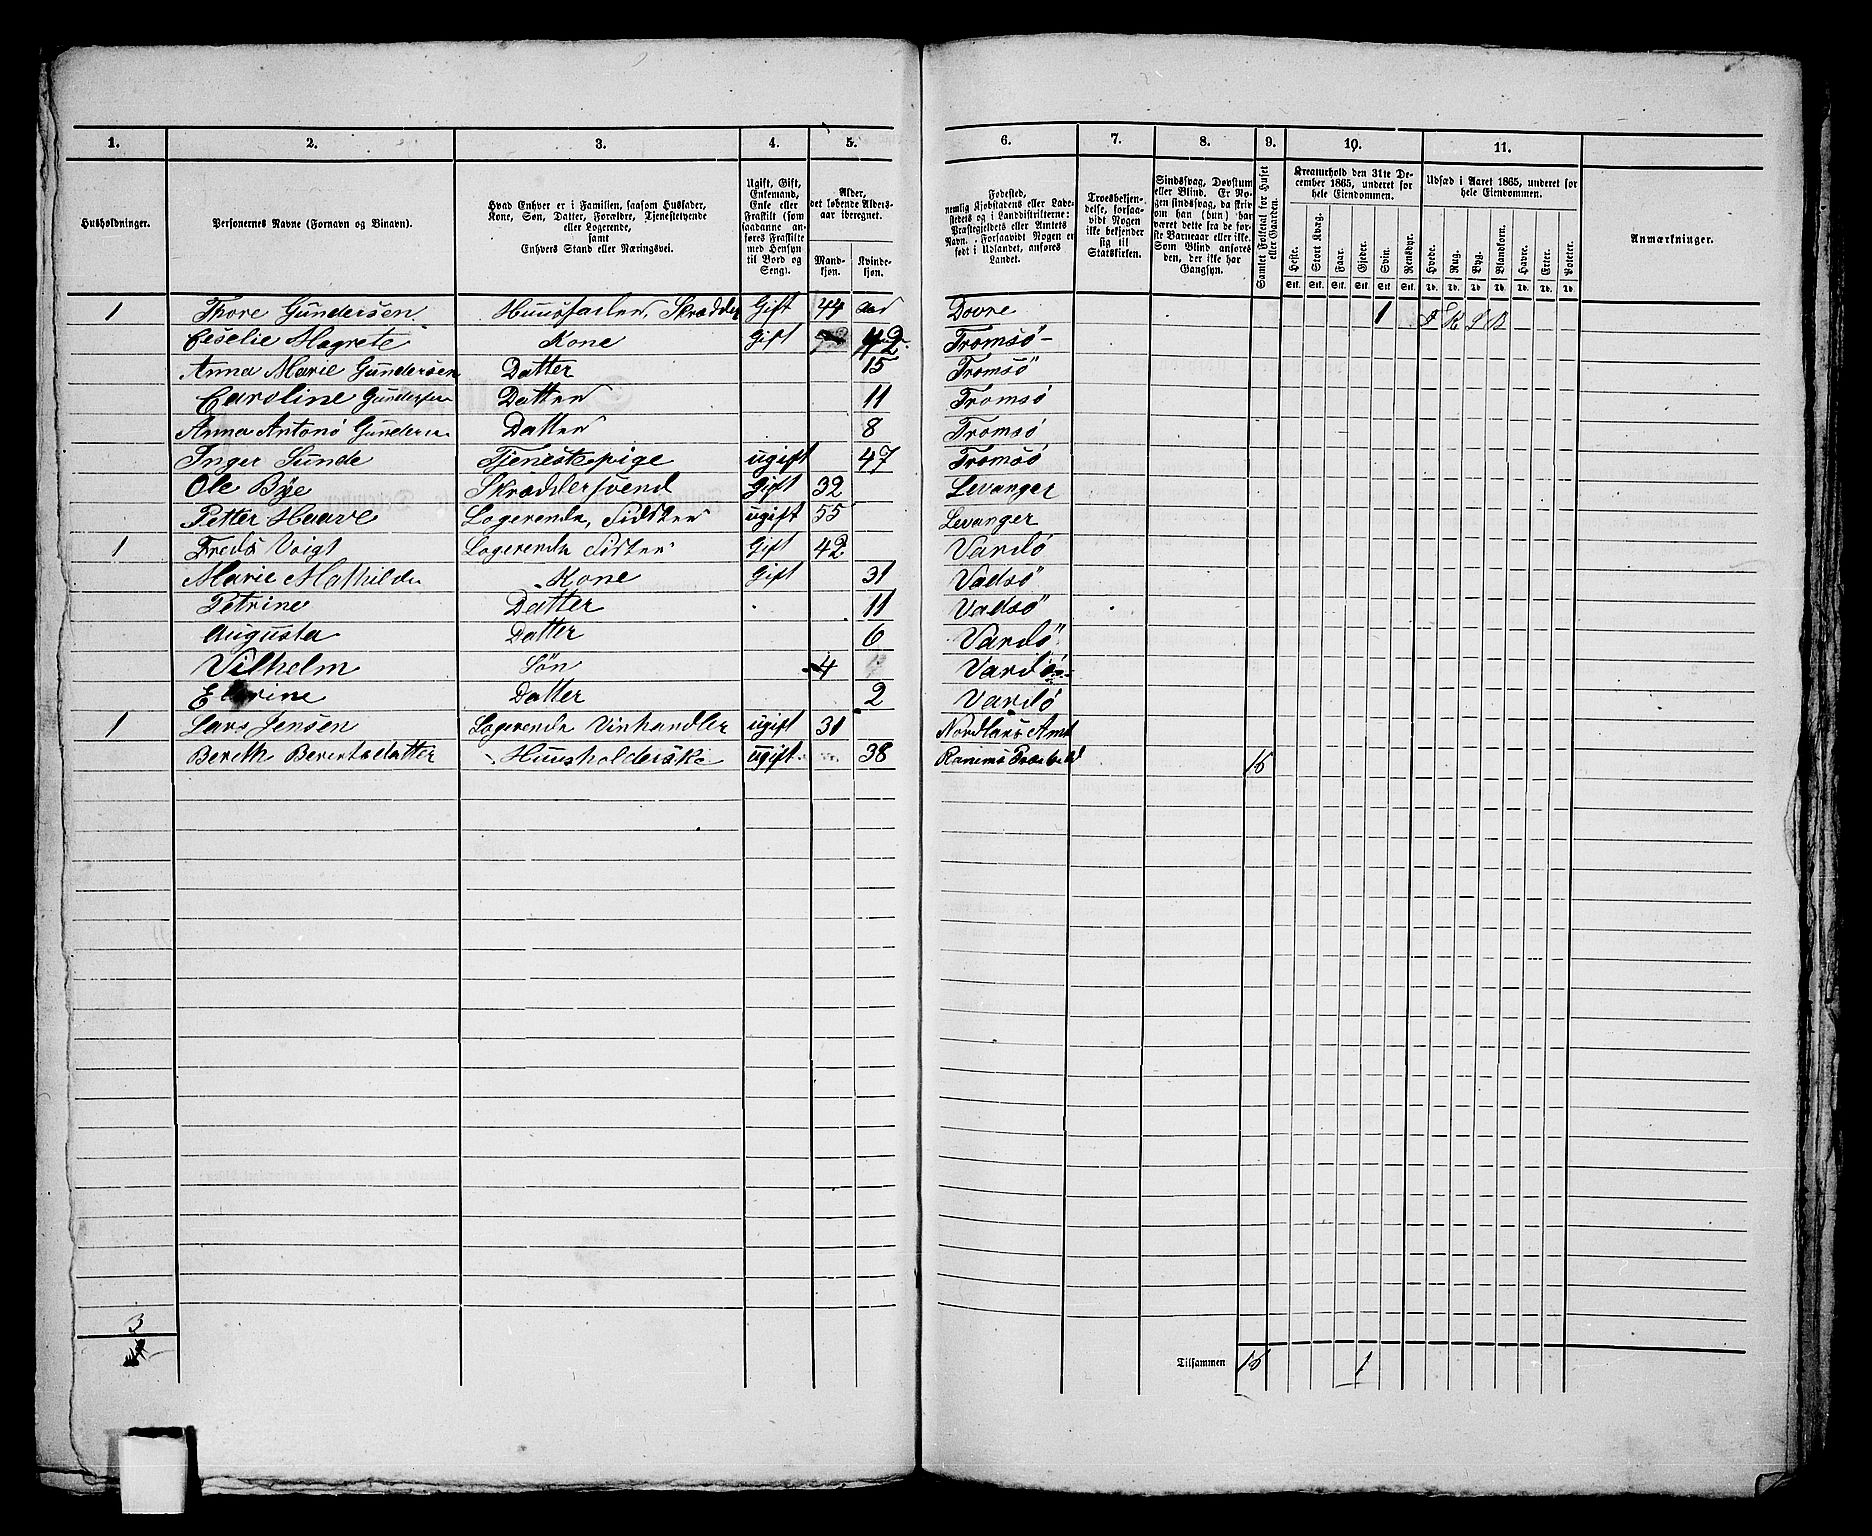 1. 2. 3. 4. 5. 6. 7. 8. 9. 10. 11.
Husholdninger.
Personernes Navne (Fornavn og Binavn).
Hvad Enhver er i Familien, saasom Husfader,
Kone, Søn, Datter, Forældre, Tjenestetyende
eller Logerende,
samt
Enhvers Stand eller Næringsvei.
Ugift, Gift,
Enkemand,
Enke eller
Fraskilt (som
saadanne an-
føres Fraskilte
med Hensyn
til Bord og
Seng).
Alder,
det løbende Alders-
aar iberegnet.
Mand-
kjøn.
Kvinde-
kjøn.
Fødested,
nemlig Kjøbstadens eller Lade-
stedets og i Landdistrikterne:
Præstegjeldets eller Amtets
Navn. Forsaavidt Nogen er
født i Udlandet, anføres
Landet.
Troesbekjen-
delse, forsaa-
vidt Nogen
ikke bekjender
sig til
Statskirken.
Sindssvag, Døvstum
eller Blind. Er No-
gen sindssvag, da skriv
om han (hun) har
været dette fra de før-
ste Barneaar eller ikke.
Som Blind anføres
den, der ikke har
Gangsyn.
Samlet Folketal for Huset
eller Gaarden.
Kreaturhold den 31te De-
cember 1865, underet for
hele Eiendommen.
Heste. Stort Kvæg. Faar. Gjeder. Svin. Rensdyr.
Stk. Stk. Stk. Stk. Stk. Stk.
Udsæd i Aaret 1865, underet for
hele Eiendommen.
Hvede. Rug. Byg. Blandkorn. Havre. Erter. Poteter.
Td. Td. Td. Td. Td. Td. Td.
Anmærkninger.
1 Thore Gundersen Huusfader, Skrædder Gift 44 Dovre 1
Ceselie Magrete Kone Gift 42 Tromsø
Anna Marie Gundersen Datter 15 Tromsø
Caroline Gundersen Datter 11 Tromsø
Anna Antonø Gundersen Datter 8 Tromsø
Inger Sunde Tjenestepige ugift 47 Tromsø
Ole Bye Skræddersvend Gift 32 Levanger
Petter Haave Logerende, ugift 55 Levanger
1 Freds Voigt Logerende Gift 42 Vardø
Marie Mathilde Kone Gift 31 Vadsø
Petrine Datter 11 Vadsø
Augusta Datter 6 Vardø
Vilhelm Søn 4 Vardø
Datter 2 Vardø
1 Lars Jensen Logerende Vinhandler ugift 31 Nordlans Amt
Bereth Berentsdatter Huusholderske ugift 38 16
3
Tilsammen 16 1